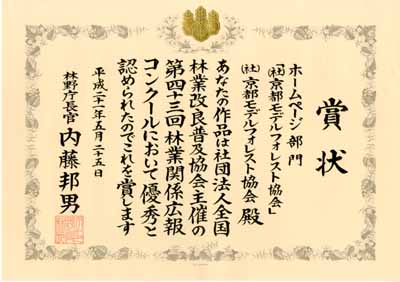 賞状
ホームページ部門
「(社)京都モデルフォレスト協会」
(社)京都モデルフォレスト協会 殿
あなたの作品は社団法人全国
林業改良普及協会主催の
第四十三回林業関係広報
コンクールにおいて優秀と
認められたのでこれを賞します
平成二十二年五月二十五日
林野庁長官 内藤邦男